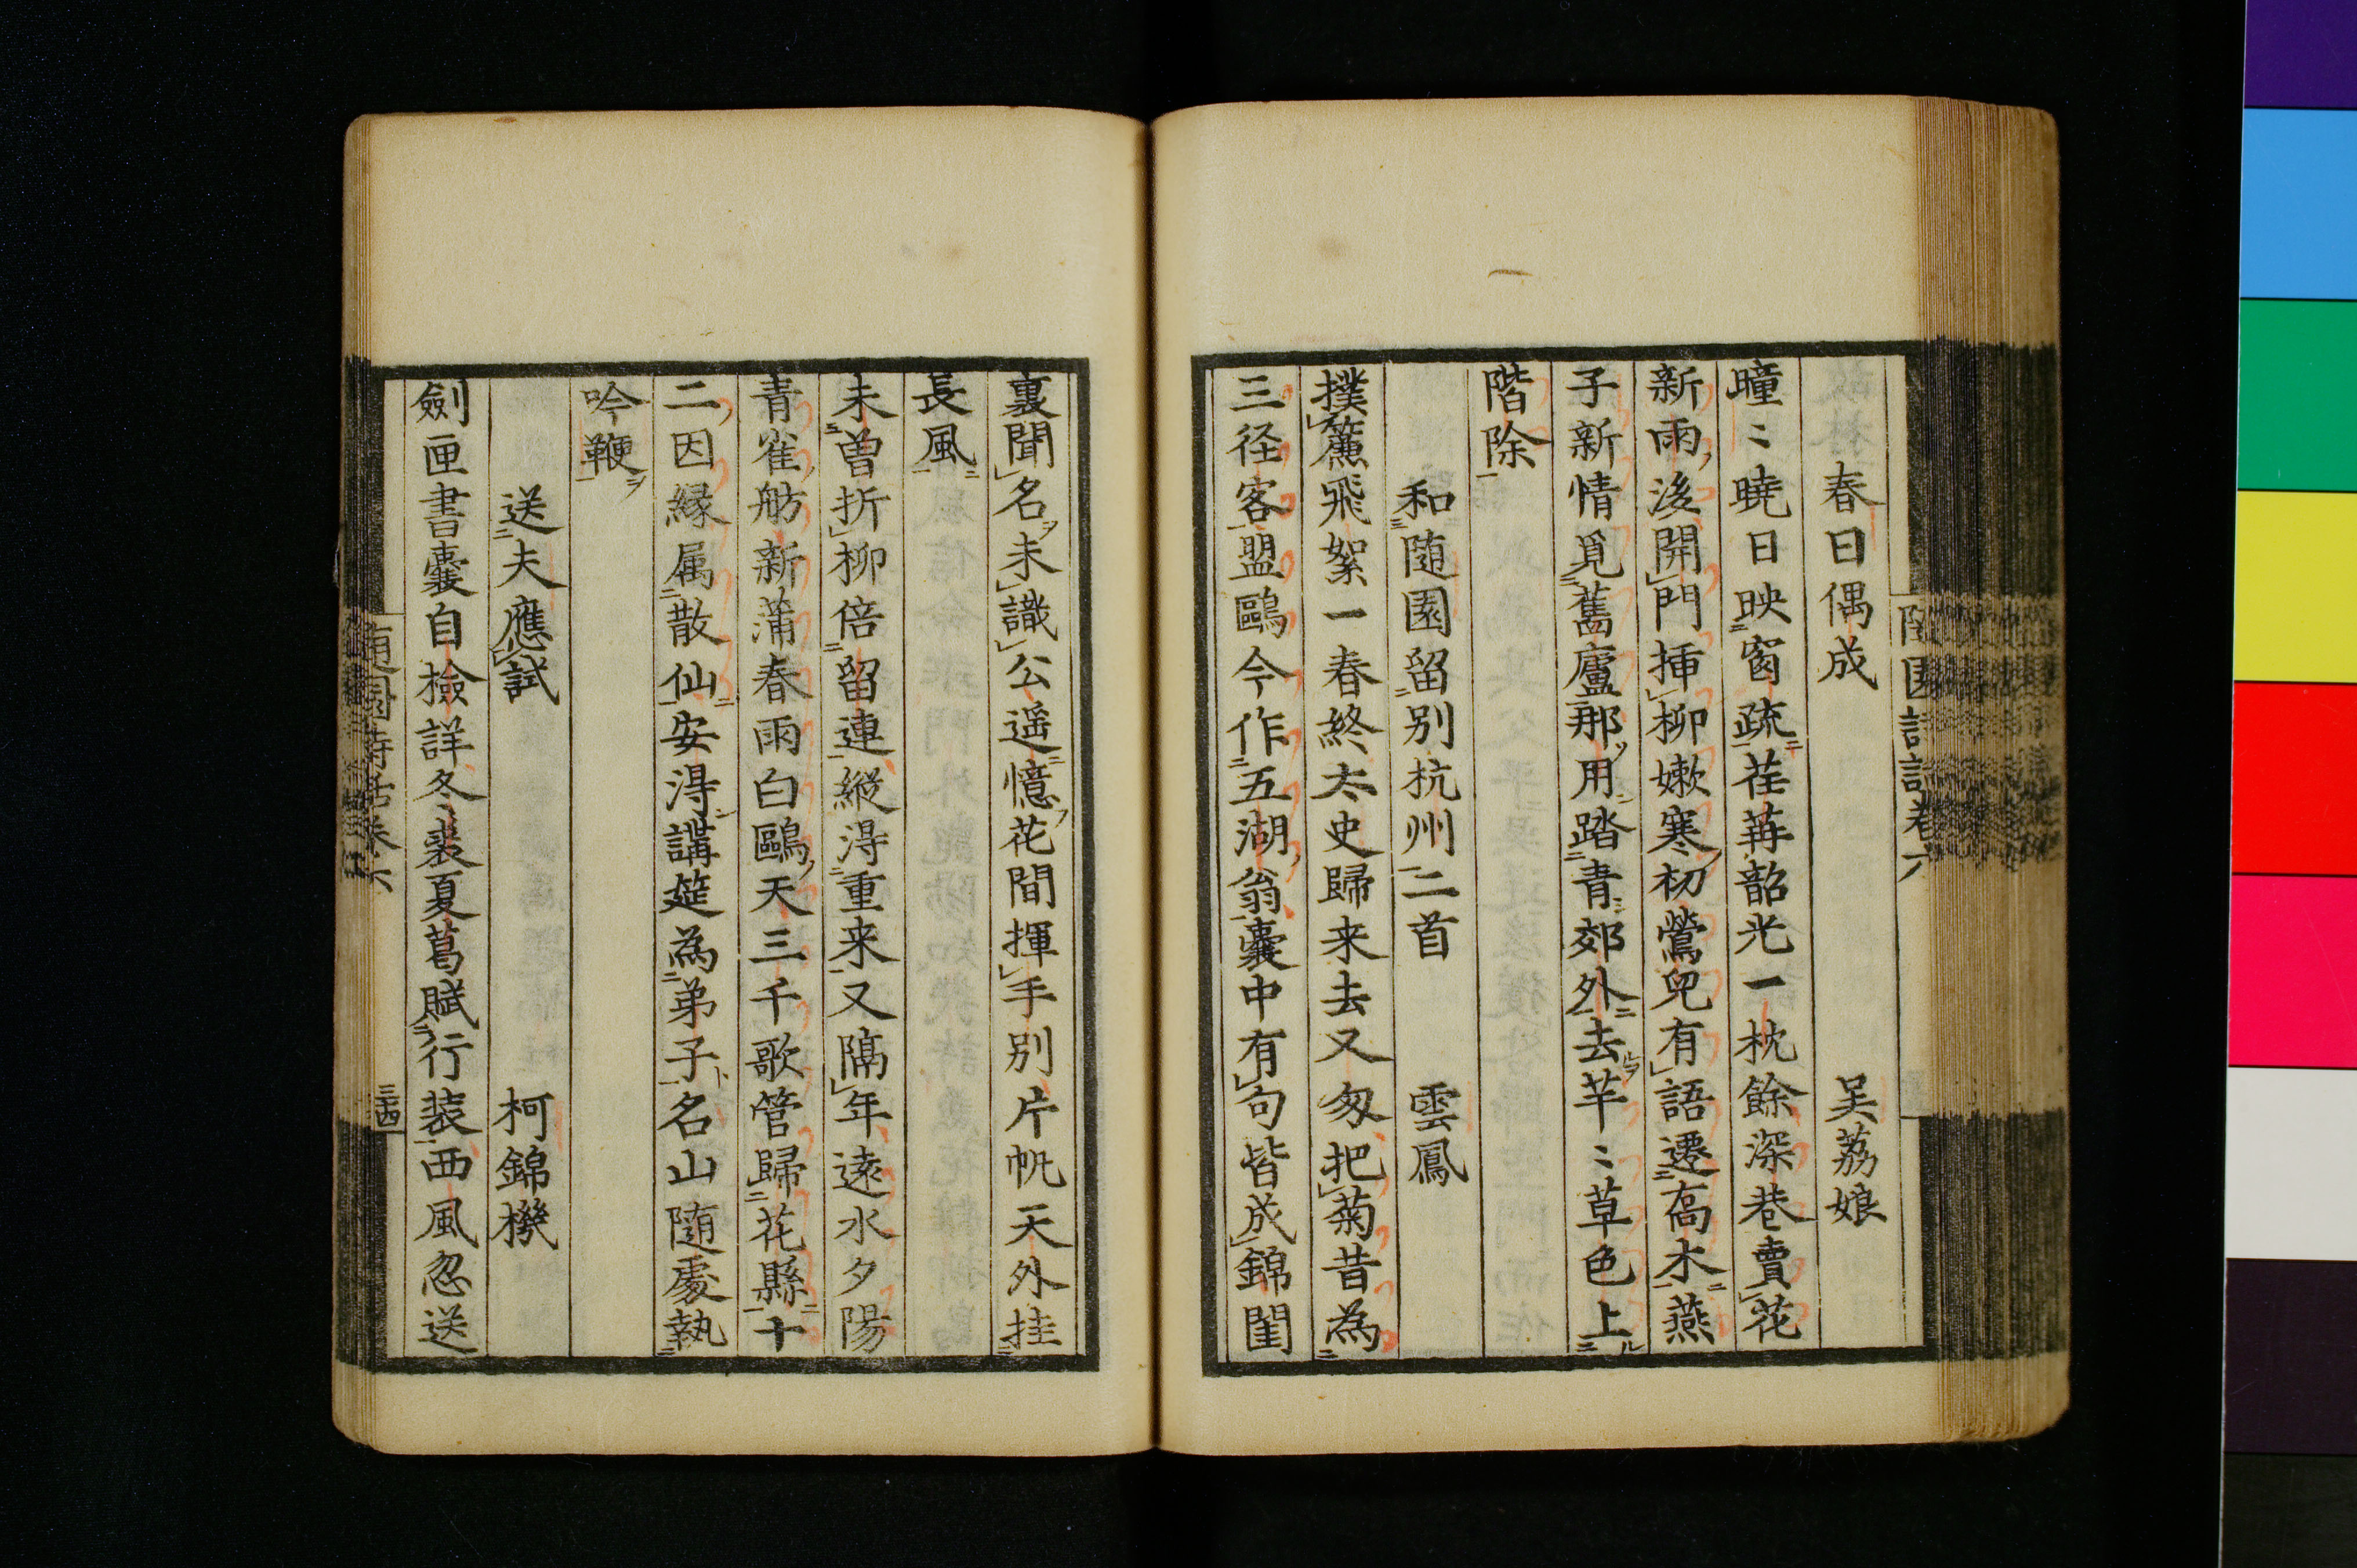 春日偶成　吴荔娘
曈〻曉日映窗疏荏苒韶光一枕餘深巷賣花
新雨後開門挿柳嫩寒初鶯兒有語遷高木燕
子新情覓舊廬那用踏青郊外去芊〻草色上
階除
和随園留别杭州二首　雲鳳
撲簾飛絮一春終太史歸来去又匆把菊昔為
三径客盟鷗今作五湖翁囊中有句皆成錦閨
裏聞名未識公遥憶花間揮手別片帆天外挂
長風
未曽折柳倍留連縱淂重来又隔年遠水夕陽
青雀舫新蒲春雨白鷗天三千歌管歸花縣十
二因縁属散仙安淂講筵為弟子名山随處執
吟鞭
送夫應試　柯錦機
劍匣書囊自檢詳冬裘夏葛賦行装西風忽送
随園詩話巻六
三四